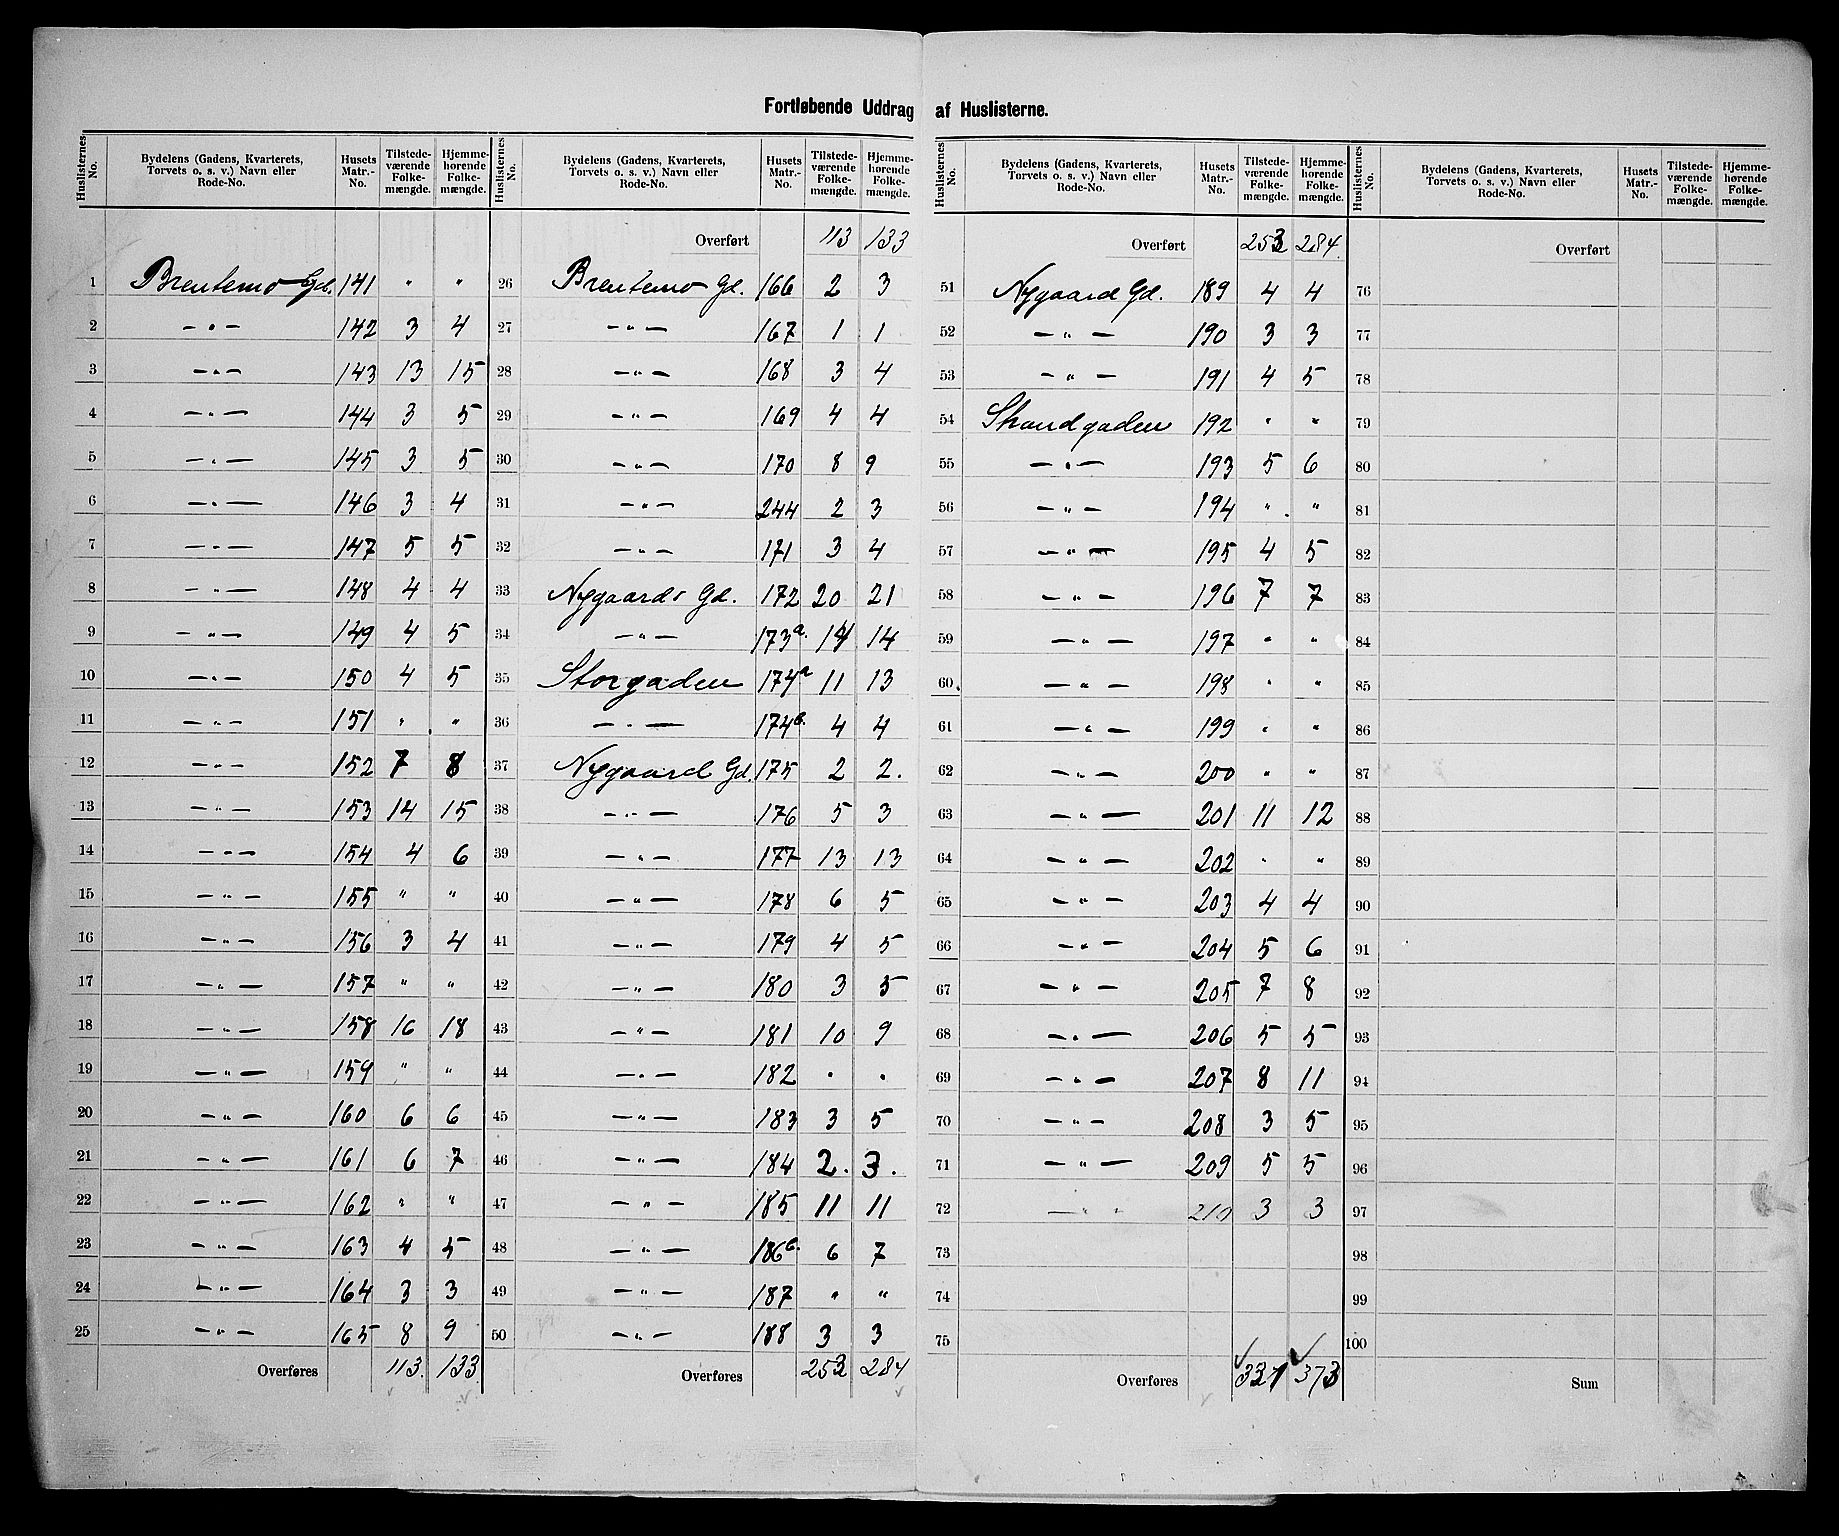 Fortløbende Uddrag af Huslisterne.
Huslisternes No. | Bydelens (Gadens, Kvarterets, Torvets o. s. v.) Navn eller Rode-No. | Husets Matr.-No. | Tilstede-værende Folke-mængde. | Hjemme-hørende Folke-mængde.
1 Brentemo Gd. 141 " "
2 — " — 142 3 4
3 — " — 143 13 15
4 — " — 144 3 5
5 — " — 145 3 5
6 — " — 146 3 4
7 — " — 147 5 5
8 — " — 148 4 4
9 — " — 149 4 5
10 — " — 150 4 5
11 — " — 151 " "
12 — " — 152 7 8
13 — " — 153 14 15
14 — " — 154 4 6
15 — " — 155 " "
16 — " — 156 3 4
17 — " — 157 " "
18 — " — 158 16 18
19 — " — 159 " "
20 — " — 160 6 6
21 — " — 161 6 7
22 — " — 162 " "
23 — " — 163 4 5
24 — " — 164 3 3
25 — " — 165 8 9
Overføres 113. 133
Huslisternes No. | Bydelens (Gadens, Kvarterets, Torvets o. s. v.) Navn eller Rode-No. | Husets Matr.-No. | Tilstede-værende Folke-mængde. | Hjemme-hørende Folke-mængde.
Overført 113 133
26 Brentemo Gd. 166 2 3
27 — " — 167 1 1
28 — " — 168 3 4
29 — " — 169 4 4
30 — " — 170 8 9
31 — " — 244 2 3
32 — " — 171 3 4
33 Nygaards Gd. 172 20 21
34 — " — 173a. 14 14
35 Storgaden 174a 11 13
36 — " — 174b. 4 4
37 Nygaard Gd. 175 2 2.
38 — " — 176 5 3
39 — " — 177 13 13
40 — " — 178 6 5
41 — " — 179 4 5
42 — " — 180 3 5
43 — " — 181 10 9
44 — " — 182 " "
45 — " — 183 3 5
46 — " — 184 2. 3.
47 — " — 185 11 11
48 — " — 186 6 7
49 — " — 187 " "
50 — " — 188 3 3
Overføres 253 284
Huslisternes No. | Bydelens (Gadens, Kvarterets, Torvets o. s. v.) Navn eller Rode-No. | Husets Matr.-No. | Tilstede-værende Folke-mængde. | Hjemme-hørende Folke-mængde.
Overført 253 284.
51 Nygaard Gd. 189 4 4
52 — " — 190 3 3
53 — " — 191 4 5
54 Strandgaden 192 " "
55 — " — 193 5 6
56 — " — 194 " "
57 — " — 195 4 5
58 — " — 196 7 7
59 — " — 197 " "
60. — " — 198 " "
61 — " — 199 " "
62 — " — 200 " "
63 — " — 201 11 12
64 — " — 202 " "
65 — " — 203 4 4
66 — " — 204 5 6
67 — " — 205 7 8
68 — " — 206 5 5
69 — " — 207 8 11
70 — " — 208 3 5
71 — " — 209 5 5
72 — " " 210 3 3
73
74
75
Overføres 331 373
Huslisternes No. | Bydelens (Gadens, Kvarterets, Torvets o. s. v.) Navn eller Rode-No. | Husets Matr.-No. | Tilstede-værende Folke-mængde. | Hjemme-hørende Folke-mængde.
Overført
76
77
78
79
80
81
82
83
84
85
86
87
88
89
90
91
92
93
94
95
96
97
98
99
100
Sum